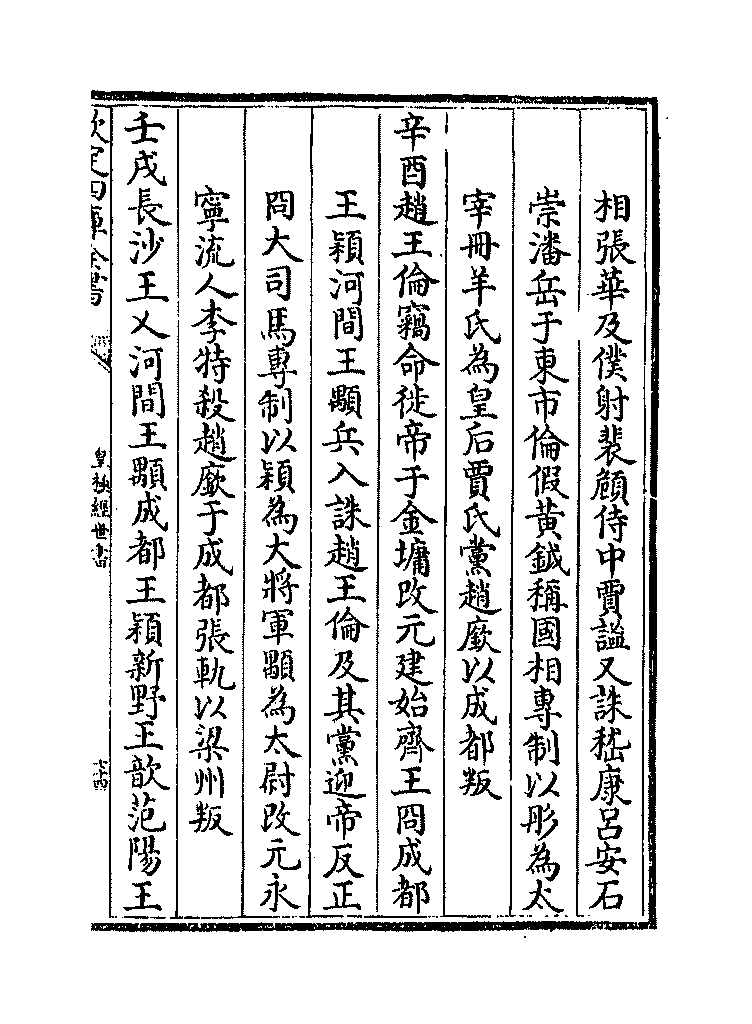 相張華及僕射裴頠侍中賈謐又誅嵇康呂安石
崇潘岳于東市倫假黄鉞稱國相專制以彤為太
宰冊羊氏為皇后賈氏黨趙廞以成都叛
辛酉趙王倫竊命徙帝于金墉改元建始齊王冏成都
王穎河間王顒兵入誅趙王倫及其黨迎帝反正
冏大司馬專制以穎為大將軍顒為太尉改元永
寧流人李特殺趙廞于成都張軌以梁州叛
壬戌長沙王乂河間王顒成都王穎新野王歆范陽王
欽定四庫全書
皇極經世書
六十四